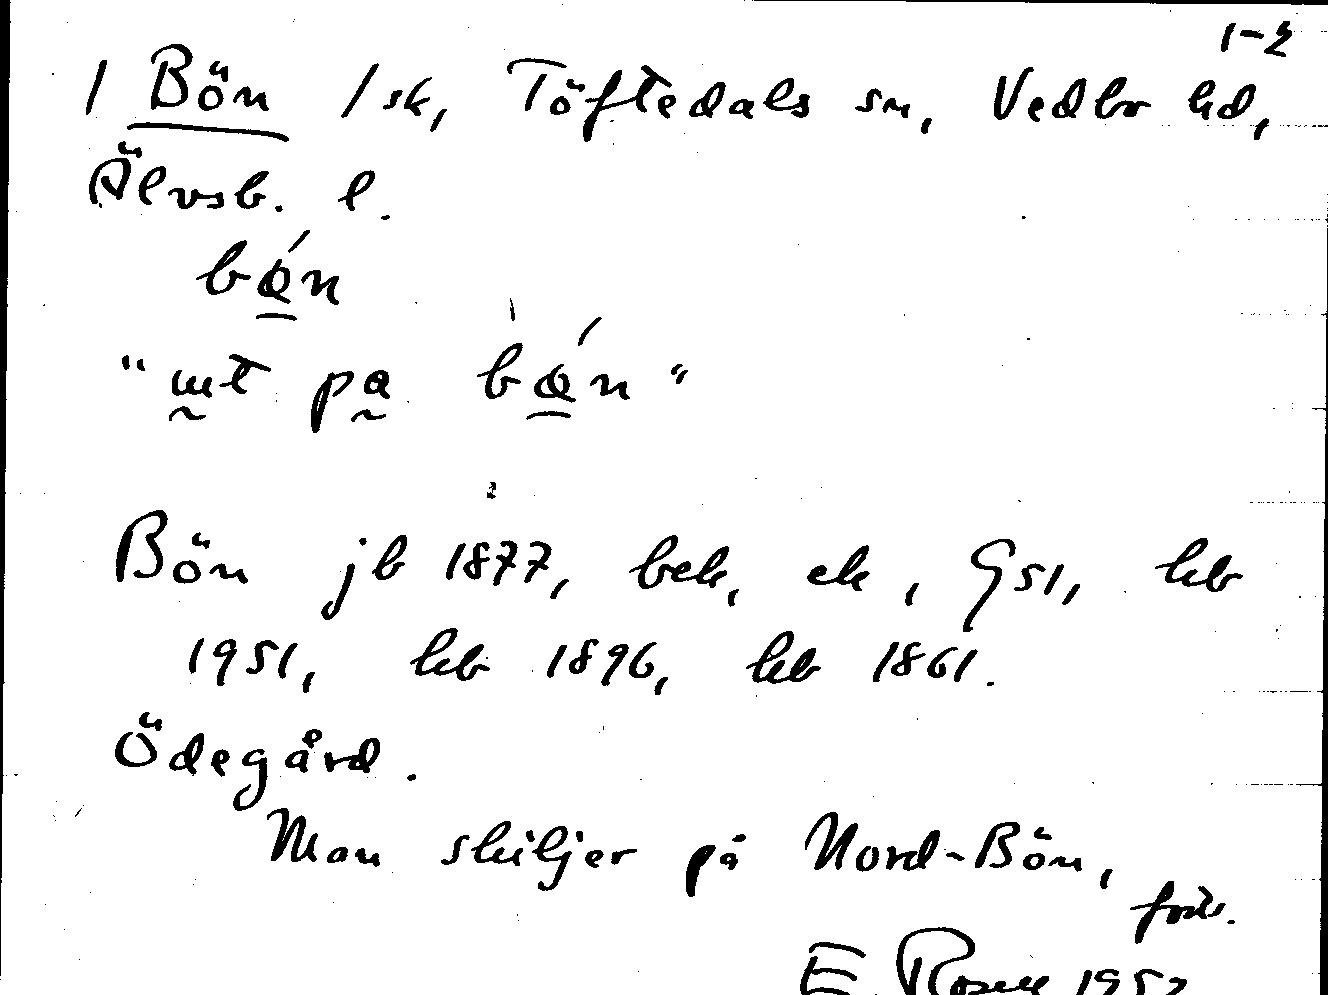 1-2
1 Bön 1 sk, Töftedals sn, Vedbo hd,
Älvsb. l.
bǿn
"ut pa bǿn"
Bön jb 1877, bek, ek, G51, kb
1951, kb 1896, kb 1861.
Ödegård.
Man skiljer på Nord-Bön,
forts.
E. Rosell 1952